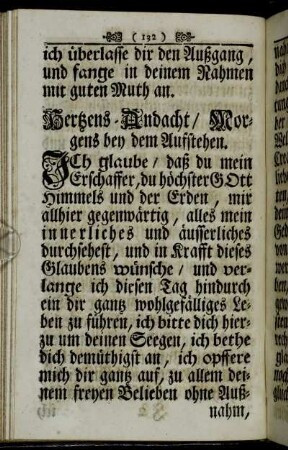 ( 192 )
ich überlasse dir den Außgang,
und fange in deinem Nahmen
mit guten Muth an.
Hertzens-Andacht / Mor-
gens bey dem Aufstehen.
ICh glaube / daß du mein
Erschaffer, du höchster GOtt
Himmels und der Erden, mir
allhier gegenwärtig, alles mein
innerliches und äusserliches
durchsehest, und in Krafft dieses
Glaubens wünsche / und ver-
lange ich diesen Tag hindurch
ein dir gantz wohlgefälliges Le-
ben zu führen, ich bitte dich hier-
zu um deinen Seegen, ich bethe
dich demüthigst an, ich opffere
mich dir gantz auf, zu allem dei-
nem freyen Belieben ohne Auß-
nahm,